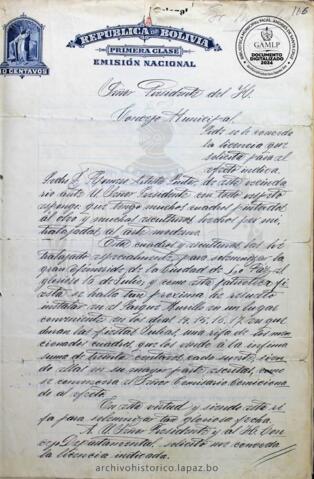 REPUBLICA DE BOLIVIA
PRIMERA CLASE
EMISIÓN NACIONAL
10 CENTAVOS
GAMLP
DOCUMENTO
DIGITALIZADO
2024
Señor Presidente del H.
Concejo Municipal
Pide se le conceda
la licencia que
solicita para el
efecto indica.
Pedro J. Artista Pintor de este vecinda
rio ante U. Señor Presidente con todo respeto
expongo: que tengo muchos cuadros pintados
al oleo y muchas hechos por mi,
trabajados al arte moderno.
Esta cuadros y los he
trabajado especialmente para solemnizar la
gran efemeride de la Ciudad de La Paz, el
glorioso 16 de Julio, y como esta patriotica fi
esta se halla tan proxima he resuelto
instalar en el Parque Murillo en un lugar
conveniente en los dias 14, 15, 16, 17 en que
duran las fiestas Julias, una rifa de los men
cionados cuadros, que los vendo a la infima
suma de treinta centavos cada suerte, sien
do ellas en su mayor parte como
se convencerá el Señor Comisario Comisiona
do al efecto.
En esta virtud y siendo esta ri
fa para solemnizar tan gloriosa fecha.
A U. Señor Presidente y al H. Con
cejo Departamental, solicito me conceda
la licencia indicada.
archivohistorico.lapaz.bo